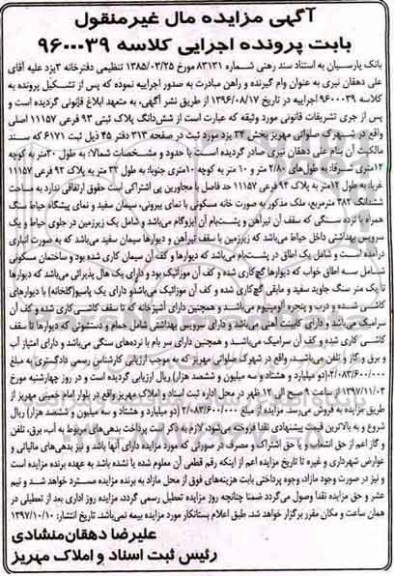 آگهی مزایده مال غیرمنقول
بابت پرونده اجرایی کلاسه ۹۶۰۰۰۳۹
بانک پارسیان به استناد سند رهنی شماره ۸۳۱۳۱ مورخ ۱۳۸۵/۰۳/۲۵ تنظیمی دفترخانه ۳یزد علیه آقای
علی دهقان نیری به عنوان وام گیرنده و راهن مبادرت به صدور اجراییه نموده که پس از تشکیل پرونده به
کلاسه ۹۶۰۰۰۳۹ اجراییه در تاریخ ۱۳۹۶/۰۸/۱۷ از طریق نشر آگهی، به متعهد ابلاغ قانونی گردیده است و
پس از جری تشریفات قانونی مورد وثیقه که عبارت است از شش‌دانگ پلاک ثبتی ۹۳ فرعی ۱۱۱۵۷ اصلی
واقع در شهرک صلواتی مهریز بخش ۲۴ یزد مورد ثبت در صفحه ۳۱۳ دفتر ۴۵ ذیل ثبت ۶۱۷۱ که سند
مالکیت آن بنام علی دهقان نیری صادر گردیده است با حدود و مشخصات شمالا: به طول ۳۰متر به کوچه
۱۲متری شرقا: به طول‌های ۲/۸۰ متر و ۱۰ متر به کوچه ۱۰متری جنوبا: به طول ۳۲ متر به پلاک ۹۴ فرعی ۱۱۱۵۷
غربا: به طول ۱۲متر به پلاک ۹۲ فرعی ۱۱۱۵۷ حد فاصل با مجاورین پی اشتراکی است حقوق ارتفاقی ندارد به مساحت
ششدانگ ۳۸۲ مترمربع، ملک مذکور به صورت خانه مسکونی با نمای بیرونی، سیمان سفید و نمای پیشگاه حیاط سنگ
همراه با نرده سنگی که سقف آن تیرآهن و پشت‌بام آن ایزوگام می‌باشد و شامل یک زیرزمین در جلوی حیاط و یک
سرویس بهداشتی داخل حیاط می‌باشد که زیرزمین با سقف تیرآهن و دیوارها سیمان سفید می‌باشد که به صورت انباری
درآمده است و شامل یک اطاق در پشت‌بام می‌باشد که دیوارها و کف آن سیمان کاری شده بود و ساختمان مسکونی
شامل سه اطاق خواب که دیوارها گچ‌کاری شده و کف آن موزائیک بود و دارای یک هال پذیرائی می‌باشد که دیوارها
تا یک متر سنگ جاوید سفید و مابقی گچ‌کاری شده و کف آن موزائیک می‌باشد و دارای یک پاسیو(گلخانه) با دیوارهای
کاشی شده و درب و پنجره آلومینیوم می‌باشد و همچنین دارای آشپزخانه که تا سقف کاشی‌کاری شده و کف آن
سرامیک می‌باشد و دارای کابینت آهنی می‌باشد و دارای سرویس بهداشتی شامل حمام و دستشوئی که دیوارها تا سقف
کاشی کاری شده و کف آن سرامیک می‌باشد و همچنین دارای سر بام با نرده‌های سنگی می‌باشد و دارای امتیاز آب
و برق و گاز و تلفن می‌باشد، واقع در شهرک صلواتی مهریز که به موجب ارزیابی کارشناس رسمی دادگستری) به مبلغ
۲/۰۸۳/۶۰۰/۰۰۰(دو میلیارد و هشتاد و سه میلیون و ششصد هزار) ریال ارزیابی گردیده است و در روز چهارشنبه مورخ
۱۳۹۷/۱۱/۰۳ از ساعت ۹صبح الی ۱۲ ظهر در محل اداره ثبت اسناد و املاک مهریز واقع در بلوار امام خمینی مهریز از
طریق مزایده به فروش می‌رسد. مزایده از مبلغ ۲/۰۸۳/۶۰۰/۰۰۰ (دو میلیارد و هشتاد و سه میلیون و ششصد هزار) ریال
شروع و به بالاترین قیمت پیشنهادی نقدا فروخته می‌شود، لازم به ذکر است پرداخت بدهی‌های مربوط به آب، برق، تلفن
و گاز اعم از حق انشعاب و یا حق اشتراک و مصرف در صورتی که مورد مزایده دارای آنها باشد و نیز بدهی‌های مالیاتی و
عوارض شهرداری و غیره تا تاریخ مزایده اعم از اینکه رقم قطعی آن معلوم شده یا نشده باشد به عهده برنده مزایده است
و نیز در صورت وجود مازاد، وجوه پرداختی بابت هزینه‌های فوق از محل مازاد به برنده مزایده مسترد خواهد شد و نیم
عشر و حق مزایده نقدا وصول می‌گردد ضمنا چنانچه روز مزایده تعطیل رسمی گردد، مزایده روز اداری بعد از تعطیلی در
همان ساعت و مکان مقرر برگزار خواهد شد. طبق اعلام بستانکار مورد مزایده بیمه نمی‌باشد. تاریخ انتشار: ۱۳۹۷/۱۰/۱۰
علیرضا دهقان‌منشادی
رئیس ثبت اسناد و املاک مهریز